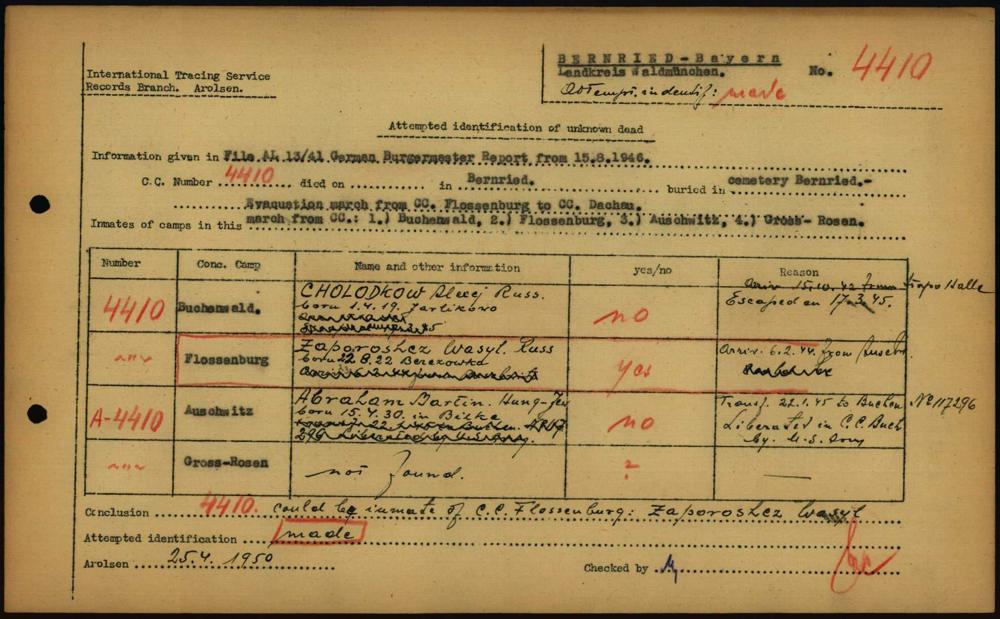 International Tracing Service
Records Branch. Arolsen.
BERNRIED-Bayern
Landkreis Waldmünchen.
No. 4410
Attempt. indentif: made
Attempted identification of unknown dead
Information given in File AL 13/41 German Burgermester Report from 15.8.1946.
C.C. Number 4410 died on in Bernried. buried in cemetery Bernried.-
Evaquation march from CC. Flossenburg to CC. Dachau.
Inmates of camps in this march from CC.: 1.) Buchenwald, 2.) Flossenburg, 3.) Auschwitz, 4.) Gross- Rosen.
Number Conc. Camp Name and other information yes/no Reason
4410 Buchenwald. CHOLODKOW Alexej Russ. no Arriv. 15.10.42 from Stapo Halle
born 1.4.19. Jarlikovo Escaped on 17.3.45.
-"- Flossenburg Zaporoshez Wasyl. Russ yes Arriv. 6.2.44. from
born 22.8.22 Berezowka
A-4410 Auschwitz Abraham Martin. Hung-Jew no Transf. 22.1.45 to Buchen. No 117296
born 15.4.30. in Bilke Liberated in C.C. Buch
by U.S. Army
-"- Gross-Rosen not found. ? —
Conclusion 4410. could be inmate of C.C. Flossenburg: Zaporoshez Wasyl
Attempted identification made
Arolsen 25.4.1950 Checked by